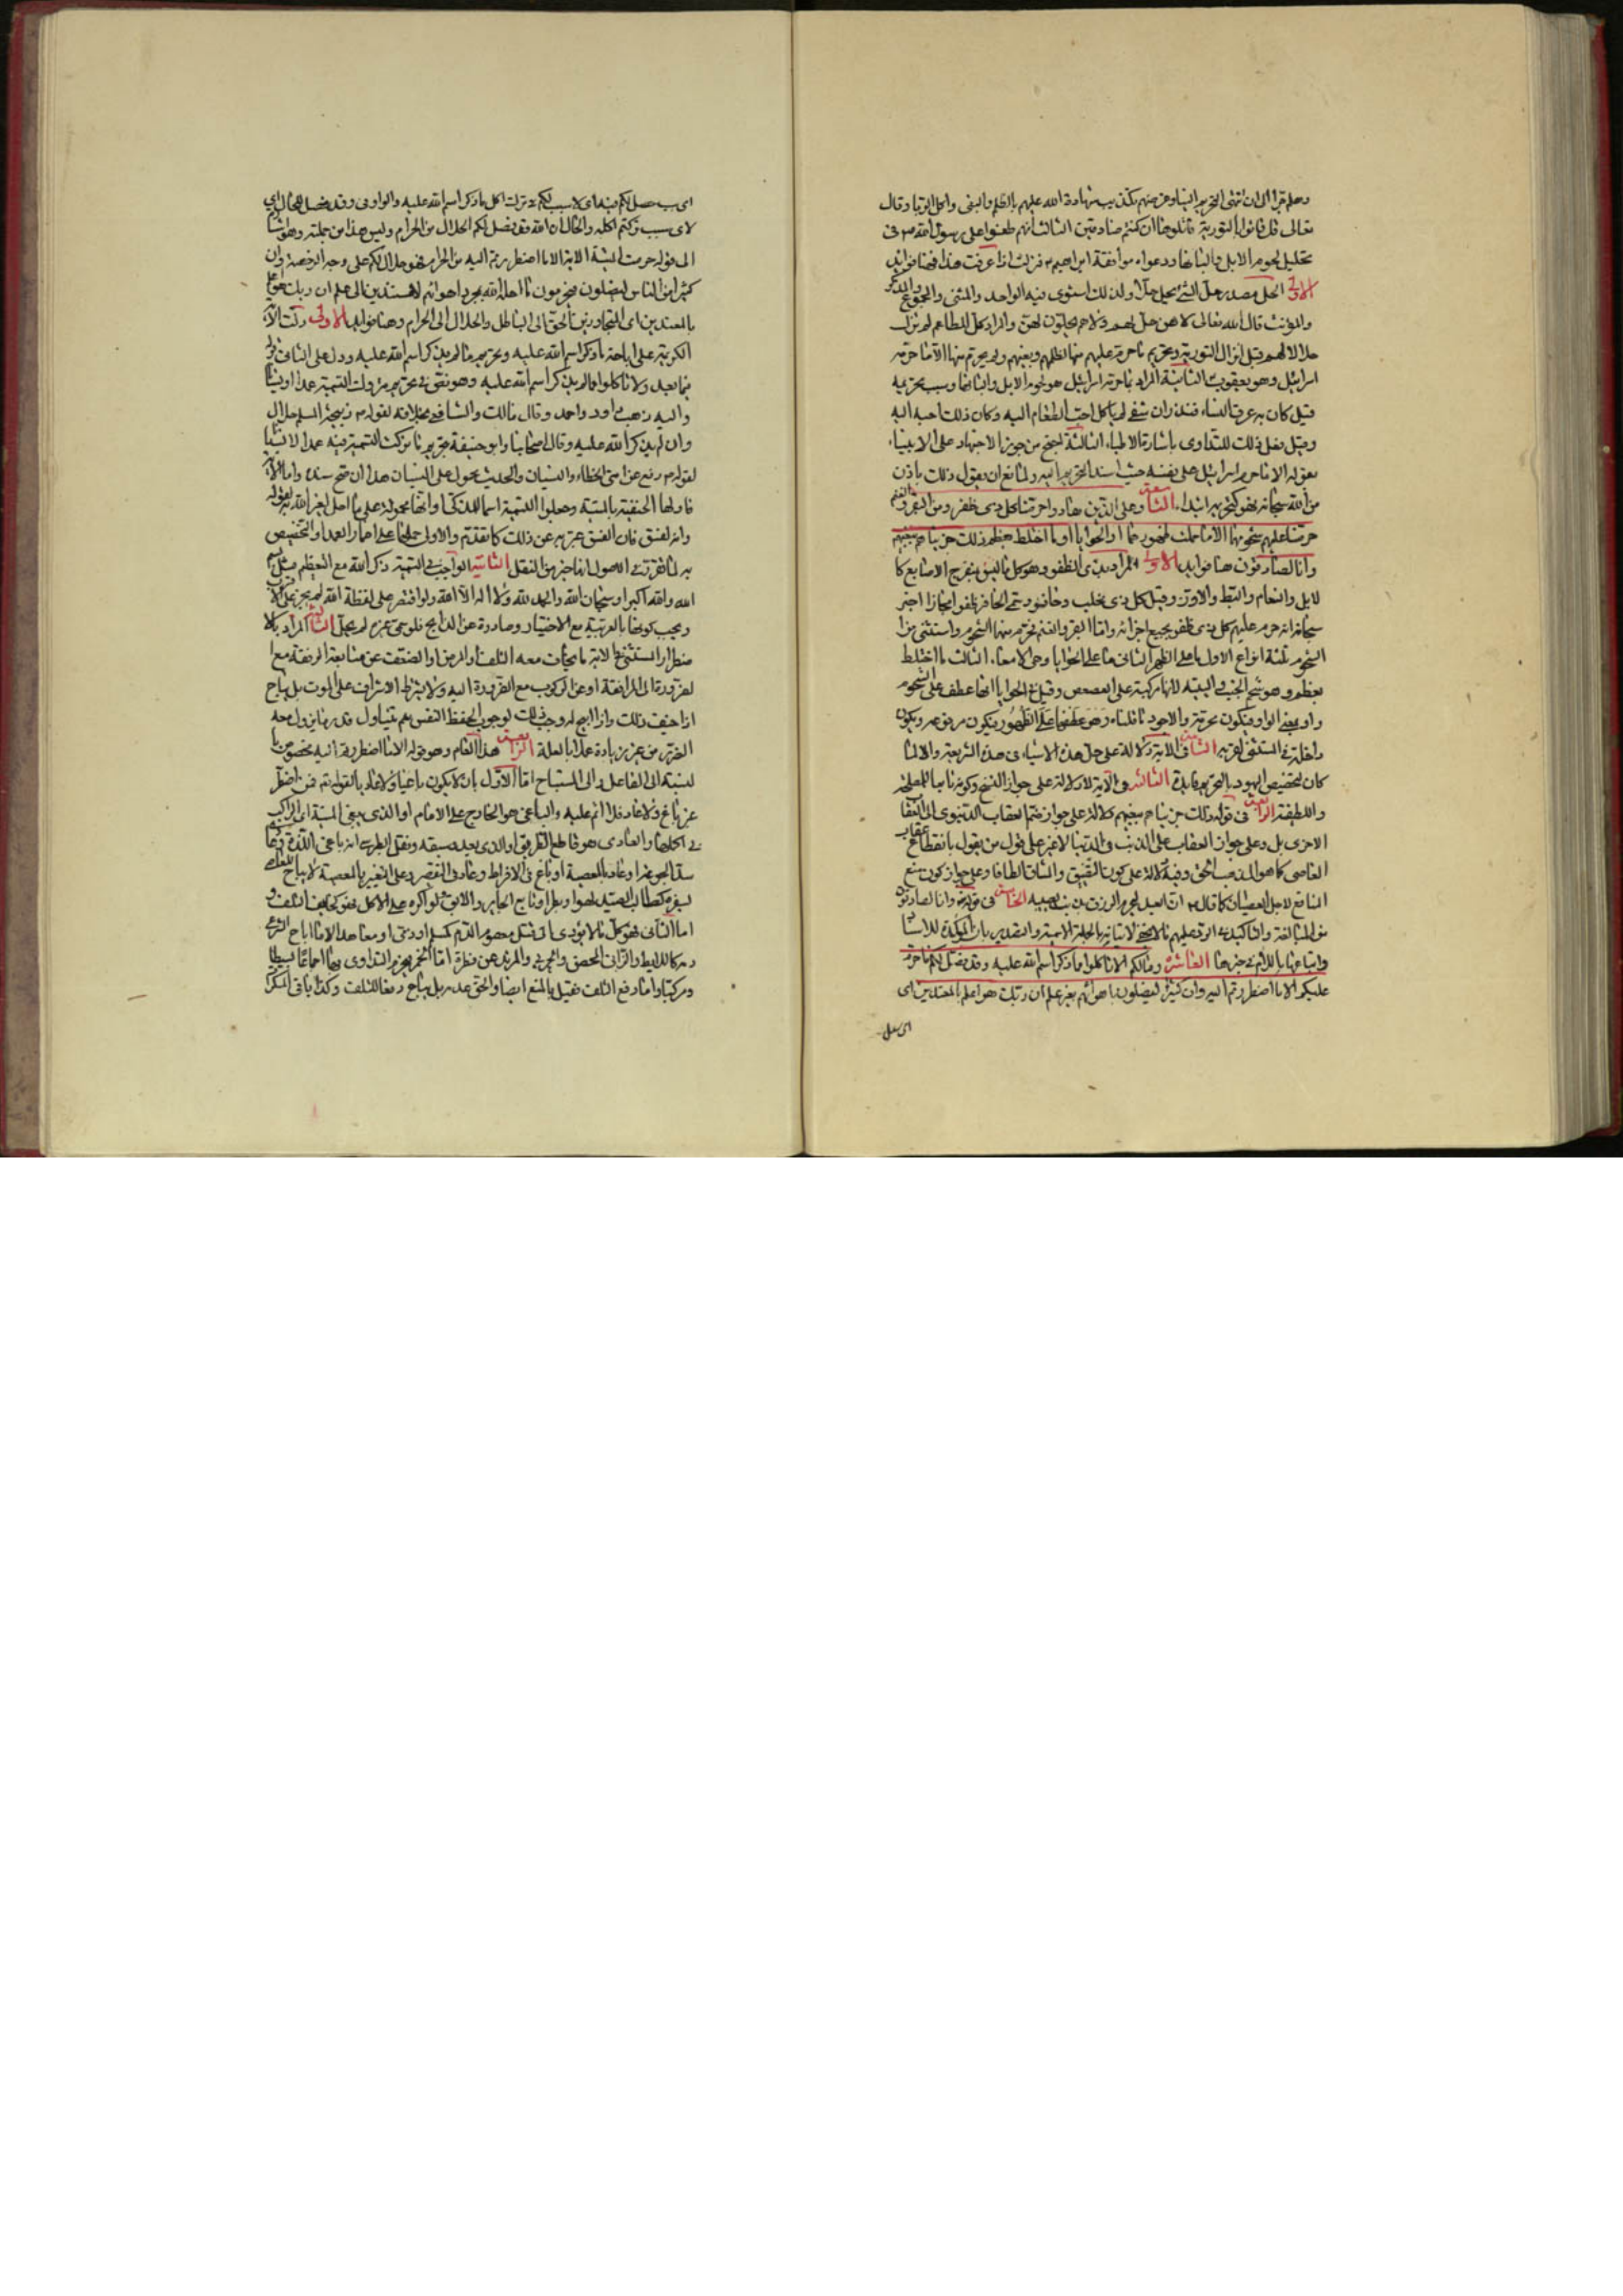 وهلم جرا الى ان انتهى التحريم الينا وغرضهم تكذيب شهادة الله عليهم بالظلم والبغى واكل الربا وقال
تعالى قل فاتوا بالتورية فاتلوها ان كنتم صادقين الثالث انهم طعنوا على رسول الله ص فى
تحليل لحوم الابل والبانها ودعواه موافقة ابراهيم ع فنزلت اذا عرفت هذا فهنا فوايد
الاولى الحل مصدر حل الشئ يحل حلا ولذلك استوى فيه الواحد والمثنى والمجموع والمذكر
والمؤنث قال الله تعالى لا هن حل لهم ولا هم يحلون لهن والمراد كل الطعام لم يزل
حلالا لهم قبل انزال التورية وتحريم ما حرم عليهم منها لظلمهم وبغيهم ولم يحرم منها الا ما حرمه
اسرائيل وهو يعقوب الثانية المراد بما حرمه اسرائيل هو لحوم الابل والبانها وسبب تحريمه
قيل كان به عرق النساء فنذر ان شفى لم ياكل احب الطعام اليه وكان ذلك احبه اليه
وقيل فعل ذلك للتداوى باشارة الاطباء الثالثة احتج من جوز الاجتهاد على الانبياء
بقوله الا ما حرم اسرائيل على نفسه حيث اسند التحريم اليه ولمانع ان يقول ذلك باذن
من الله سبحانه فهو كتحريمه ابتداء التاسعة وعلى الذين هادوا حرمنا كل ذى ظفر ومن البقر والغنم
حرمنا عليهم شحومهما الا ما حملت ظهورهما او الحوايا او ما اختلط بعظم ذلك جزيناهم ببغيهم
وانا لصادقون هنا فوايد الاولى المراد بذى الظفر وهو كل ما ليس بمنفرج الاصابع كا
لابل والنعام والبط والاوز وقيل كل ذى مخلب وحافر وسمى الحافر ظفرا مجازا اخبر
سبحانه انه حرم عليهم كل ذى ظفر بجميع اجزائه واما البقر والغنم فحرم منهما الشحوم واستثنى من
الشحوم ثلثة انواع الاول ما على الظهر الثانى ما على الحوايا وهى الامعاء الثالث ما اختلط
بعظم وهو شحم الجنب والية لانها مركبة على العصعص وقيل الحوايا انها عطف على شحوم
واو بمعنى الواو فيكون محرمة والاجود ما قلناه وهو عطفها على الظهور فيكون مرفوعة ويكون
داخلة فى المستثنى لقربه الثانية فى الاية دلالة على حل هذه الاشياء فى هذه الشريعة والا لما
كان لتخصيص اليهود بالتحريم فايدة الثالثة فى الاية دلالة على جواز النسخ وكونه تابعا للمصلحة
واللطيفة الرابعة فى قوله ذلك جزيناهم ببغيهم دلالة على جواز ضم العقاب الدنيوى الى العقا
الاخرى بل وعلى جواز العقاب على الذنب فى الدنيا لا غير على قول من يقول بانقطاع عقاب
العاصى كما هو المذهب الحق وفيه دلالة على كون التضييق والمشاق الطافا وعلى جواز كون منع
المنافع لاجل العصيان كما قال ع ان العبد ليحرم الرزق بذنب يصيبه الخامسة فى قوله وانا لصادقون
من المبالغة والتاكيد الرد عليهم ما لا يخفى لاتيانه بالجملة الاسمية والتصدير بان المؤكدة للاسناد
واتباعها باللام فى خبرها العاشرة وما لكم الا تاكلوا مما ذكر اسم الله عليه وقد فصل لكم ما حرم
عليكم الا ما اضطررتم اليه وان كثيرا ليضلون باهوائهم بغير علم ان ربك هو اعلم بالمعتدين اى
اى سبب حصل لكم فيه اى لا سبب لكم فى ترك اكل ما ذكر اسم الله عليه والواو فى وقد فصل للحال اى
لاى سبب تركتم اكله والحال ان الله قد فصل لكم الحلال من الحرام وليس هذا من جملته وهو اشارة
الى قوله حرمت عليكم الميتة الاية الا ما اضطررتم اليه من الحرام فهو حلال لكم على وجه الرخصة وان
كثيرا من الناس ليضلون فيحرمون ما احله الله بمجرد اهوائهم لا مستندين الى علم ان ربك هو اعلم
بالمعتدين اى المتجاوزين الحق الى الباطل والحلال الى الحرام وهنا فوايد الاولى دلت الاية
الكريمة على اباحة ما ذكر اسم الله عليه وتحريم ما لم يذكر اسم الله عليه ودل على الثانى قوله
فيما بعد ولا تاكلوا مما لم يذكر اسم الله عليه وهو نص فى تحريم متروك التسمية عمدا او نسيانا
واليه ذهب داود واحمد وقال مالك والشافعى بخلافه لقوله ص ذبيحة المسلم حلال
وان لم يذكر الله عليه وقال اصحابنا وابو حنيفة بتحريم ما تركت التسمية فيه عمدا لا نسيانا
لقوله ص رفع عن امتى الخطاء والنسيان والحديث محمول على النسيان هذا ان صح سنده واما الاية
فاولها الحنفية بالميتة وجعلوا التسمية اسما للذكى او انها محمولة على ما اهل لغير الله به لقوله
وانه لفسق فان الفسق عبر به عن ذلك كما تقدم والاولى حملها على اضمار العمد او التخصيص
به لما تقرر فى الاصول انها خير من النقل الثانية الواجب فى التسمية ذكر الله مع التعظيم مثل بسم
الله والله اكبر او سبحان الله والحمد لله ولا اله الا الله ولو اقتصر على لفظة الله لم يجز على الاقرب
ويجب كونها بالعربية مع الاختيار وصادرة عن الذابح فلو سمى غيره لم يحل الثالثة المراد بالا
ضطرار المستثنى فى الاية ما يخاف معه التلف او المرض او الضعف عن متابعة الرفقة مع ا
لضرورة الى المرافقة او عن الركوب مع الضرورة اليه ولا يشترط الاشراف على الموت بل يباح
اذا خيف ذلك واذا ابيح له وجب ذلك لوجوب حفظ النفس نعم يتناول قدر ما يزول معه
الضرر من غير زيادة عملا بالعلة الرابعة هذا العام وهو قوله الا ما اضطررتم اليه مخصوص با
لنسبة الى الفاعل والى المستباح اما الاول بان لا يكون باغيا ولا عاديا لقوله تع فمن اضطر
غير باغ ولا عاد فلا اثم عليه والباغى هو الخارج على الامام او الذى يبغى الميتة اى الراغب
فى اكلها والعادى هو قاطع الطريق او الذى يعد وسبقه ونقل الطبرسى انه باغى اللذة وعا
سد الجوعة او عاد بالمعصية او باغ فى الافراط وعاد فى التقصير وعلى التفسير بالمعصية لا يباح للعاصى
بسفره كطالب الصيد لهوا وبطرا وتابع الجاير والابق ولو اكره على الاكل فهو كخايف التلف و
اما الثانى فهو كل ما لا يؤدى الى قتل معصوم الدم كمسلم او ذمى او معاهد الا ما اباح الشرع
دمه كاللايط والزانى المحصن والحربى والمرتد عن فطرة اما الخمر فيحرم التداوى بها اجماعا بسيطا
ومركبا واما دفع التلف فقيل بالمنع ايضا والحق عدمه بل يباح دفعا للتلف وكذا باقى المسكرا